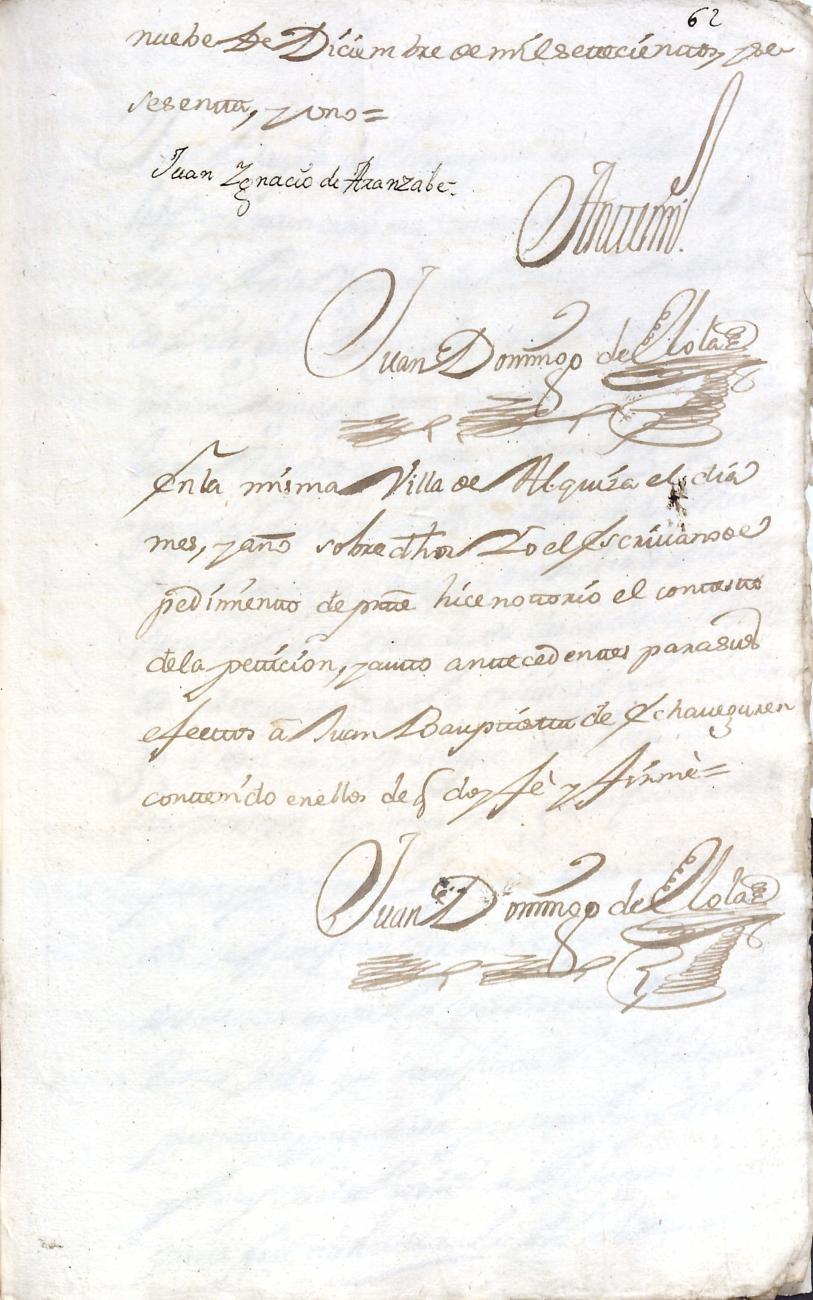 62
nuebe de Diciembre de mil setecientos, y se
sesenta, y uno=
Juan Ygnacio de Aranzabe.
Antemi.
Juan Domingo de Elola
En la misma Villa de Alquiza el dia
mes, y año sobre dhos Yo el Escrivano de
pedimento de ptte hice notorio el contesto
de la peticion, y auto antecedentes para sus
efectos à Juan Bauptista de Echaveguren
contenido en ellos de q doy fè y firmè=
Juan Domingo de Elola